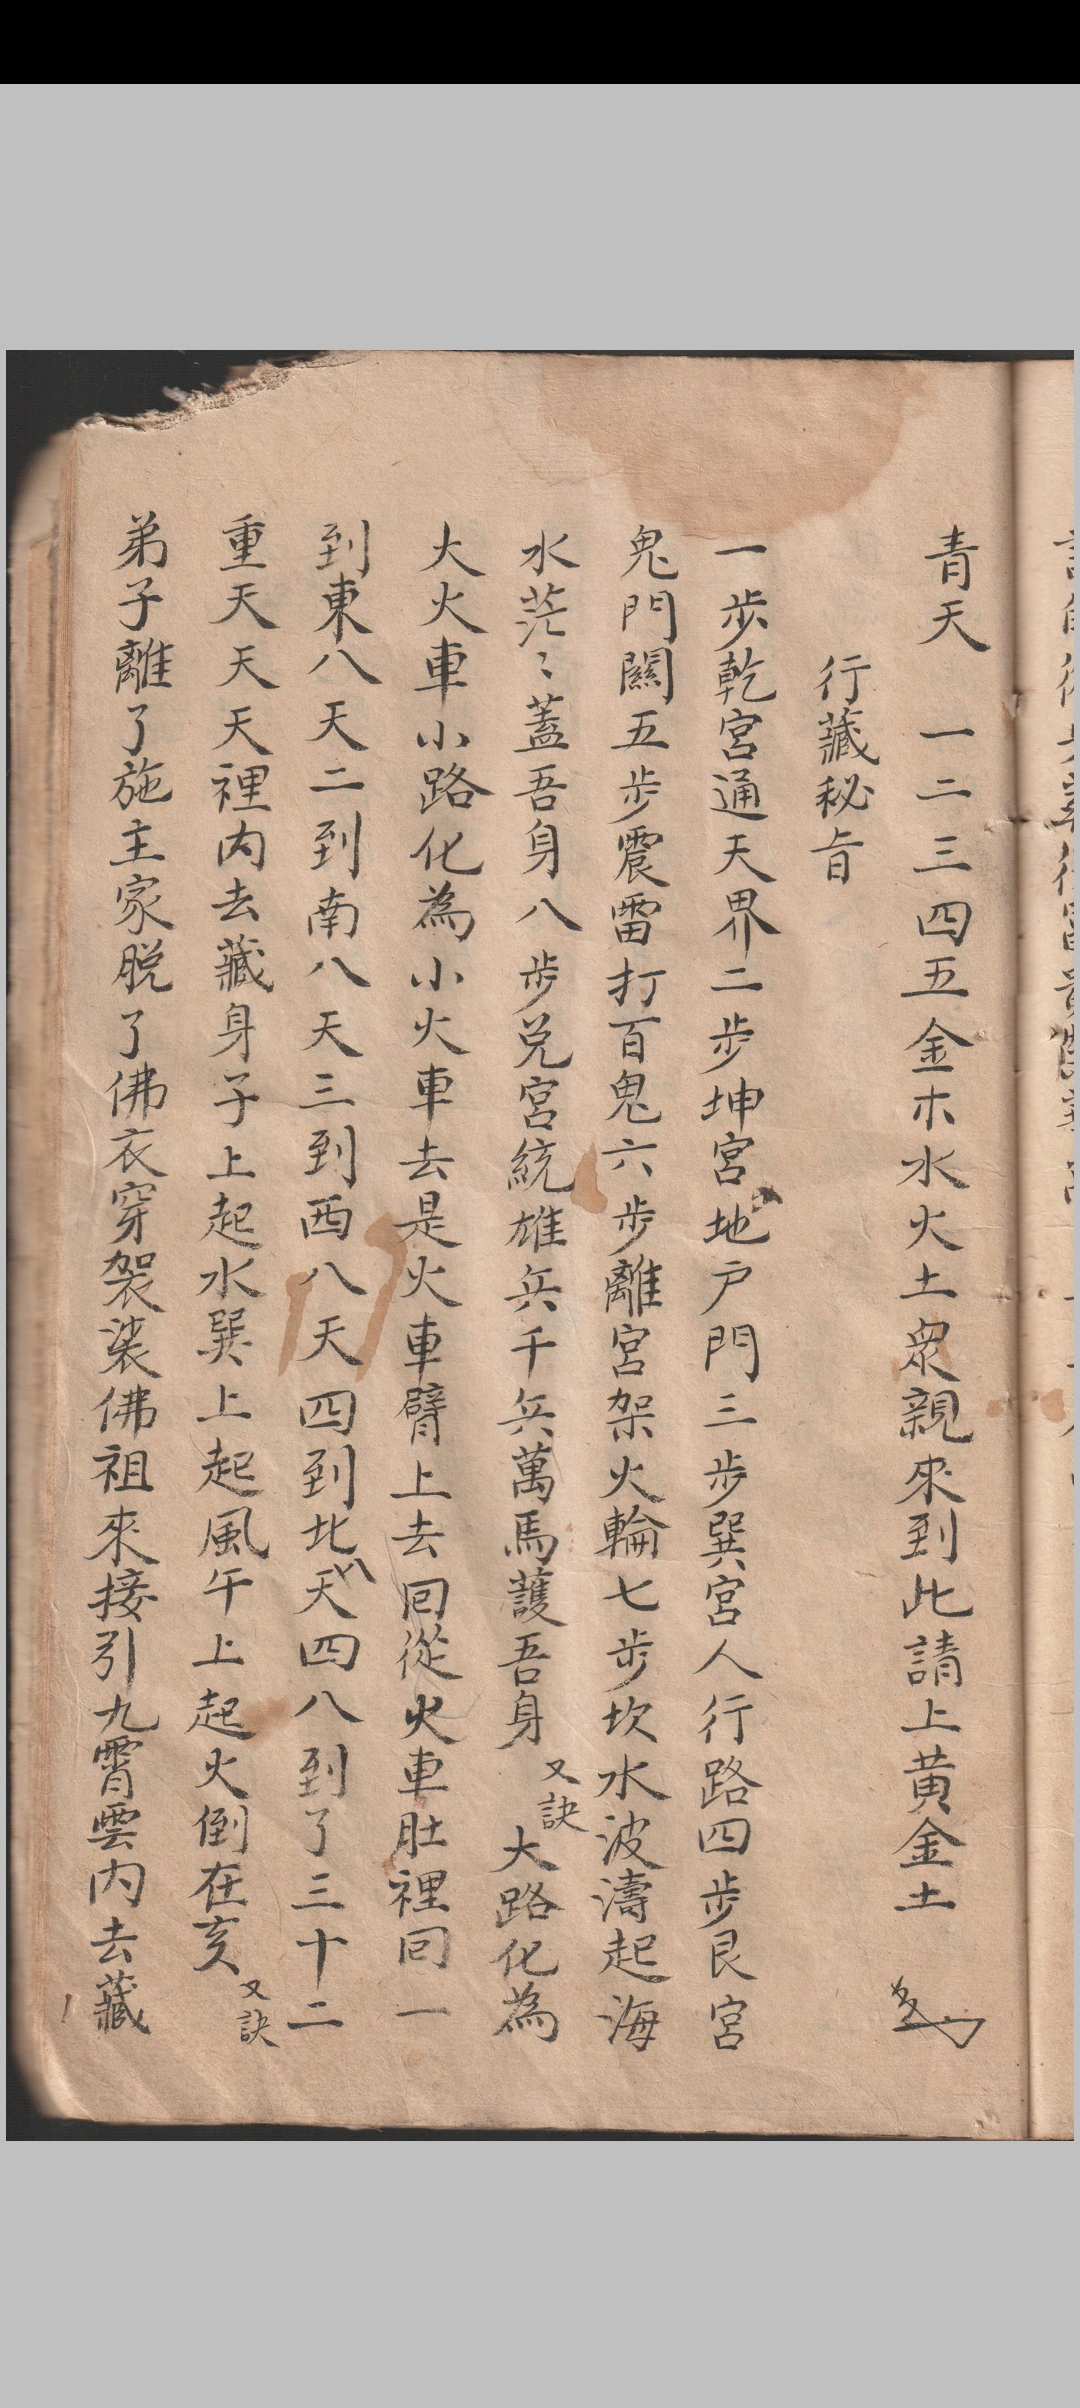 青天　一二三四五金木水火土眾親來到此請上黃金土
行藏秘旨
一步乾宮通天界二步坤宮地户門三步巽宮人行路四步艮宮
鬼門關五步震雷打百鬼六步離宮架火輪七步坎水波濤起海
水茫〻蓋吾身八步兌宮統雄兵千兵萬馬護吾身　又訣　大路化為
大火車小路化為小火車去是火車臂上去回從火車肚裡回一
到東八天二到南八天三到西八天四到北八天四八到了三十二
重天天天裡內去藏身子上起水巽上起風午上起火倒在亥　又訣
弟子離了施主家脫了佛衣穿袈裟佛祖來接引九霄雲內去藏